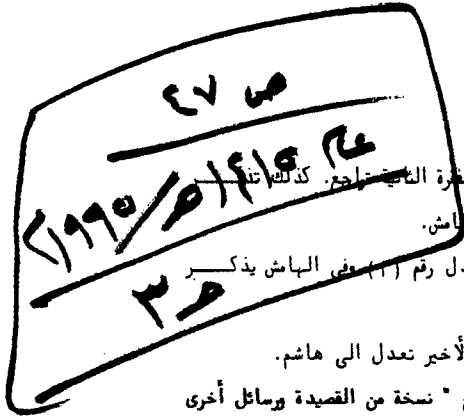 ص ٤٧
عام ١٤١٥ھ/١٩٩٥م
ح ٣
الفقرة الثانية تراجع. كذلك تذكــــر
هامش.
دل رقم (١) وفي الهامش يذكــــر
لأخير تعدل الى هاشم.
" نسخة من القصيدة ورسائل أخرى